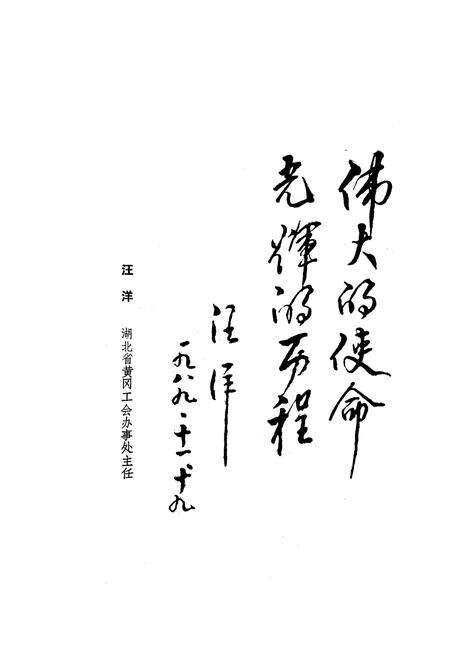 伟大的使命
光辉的历程
汪洋
一九八九、十一、十九
汪洋 湖北省黄冈工会办事处主任